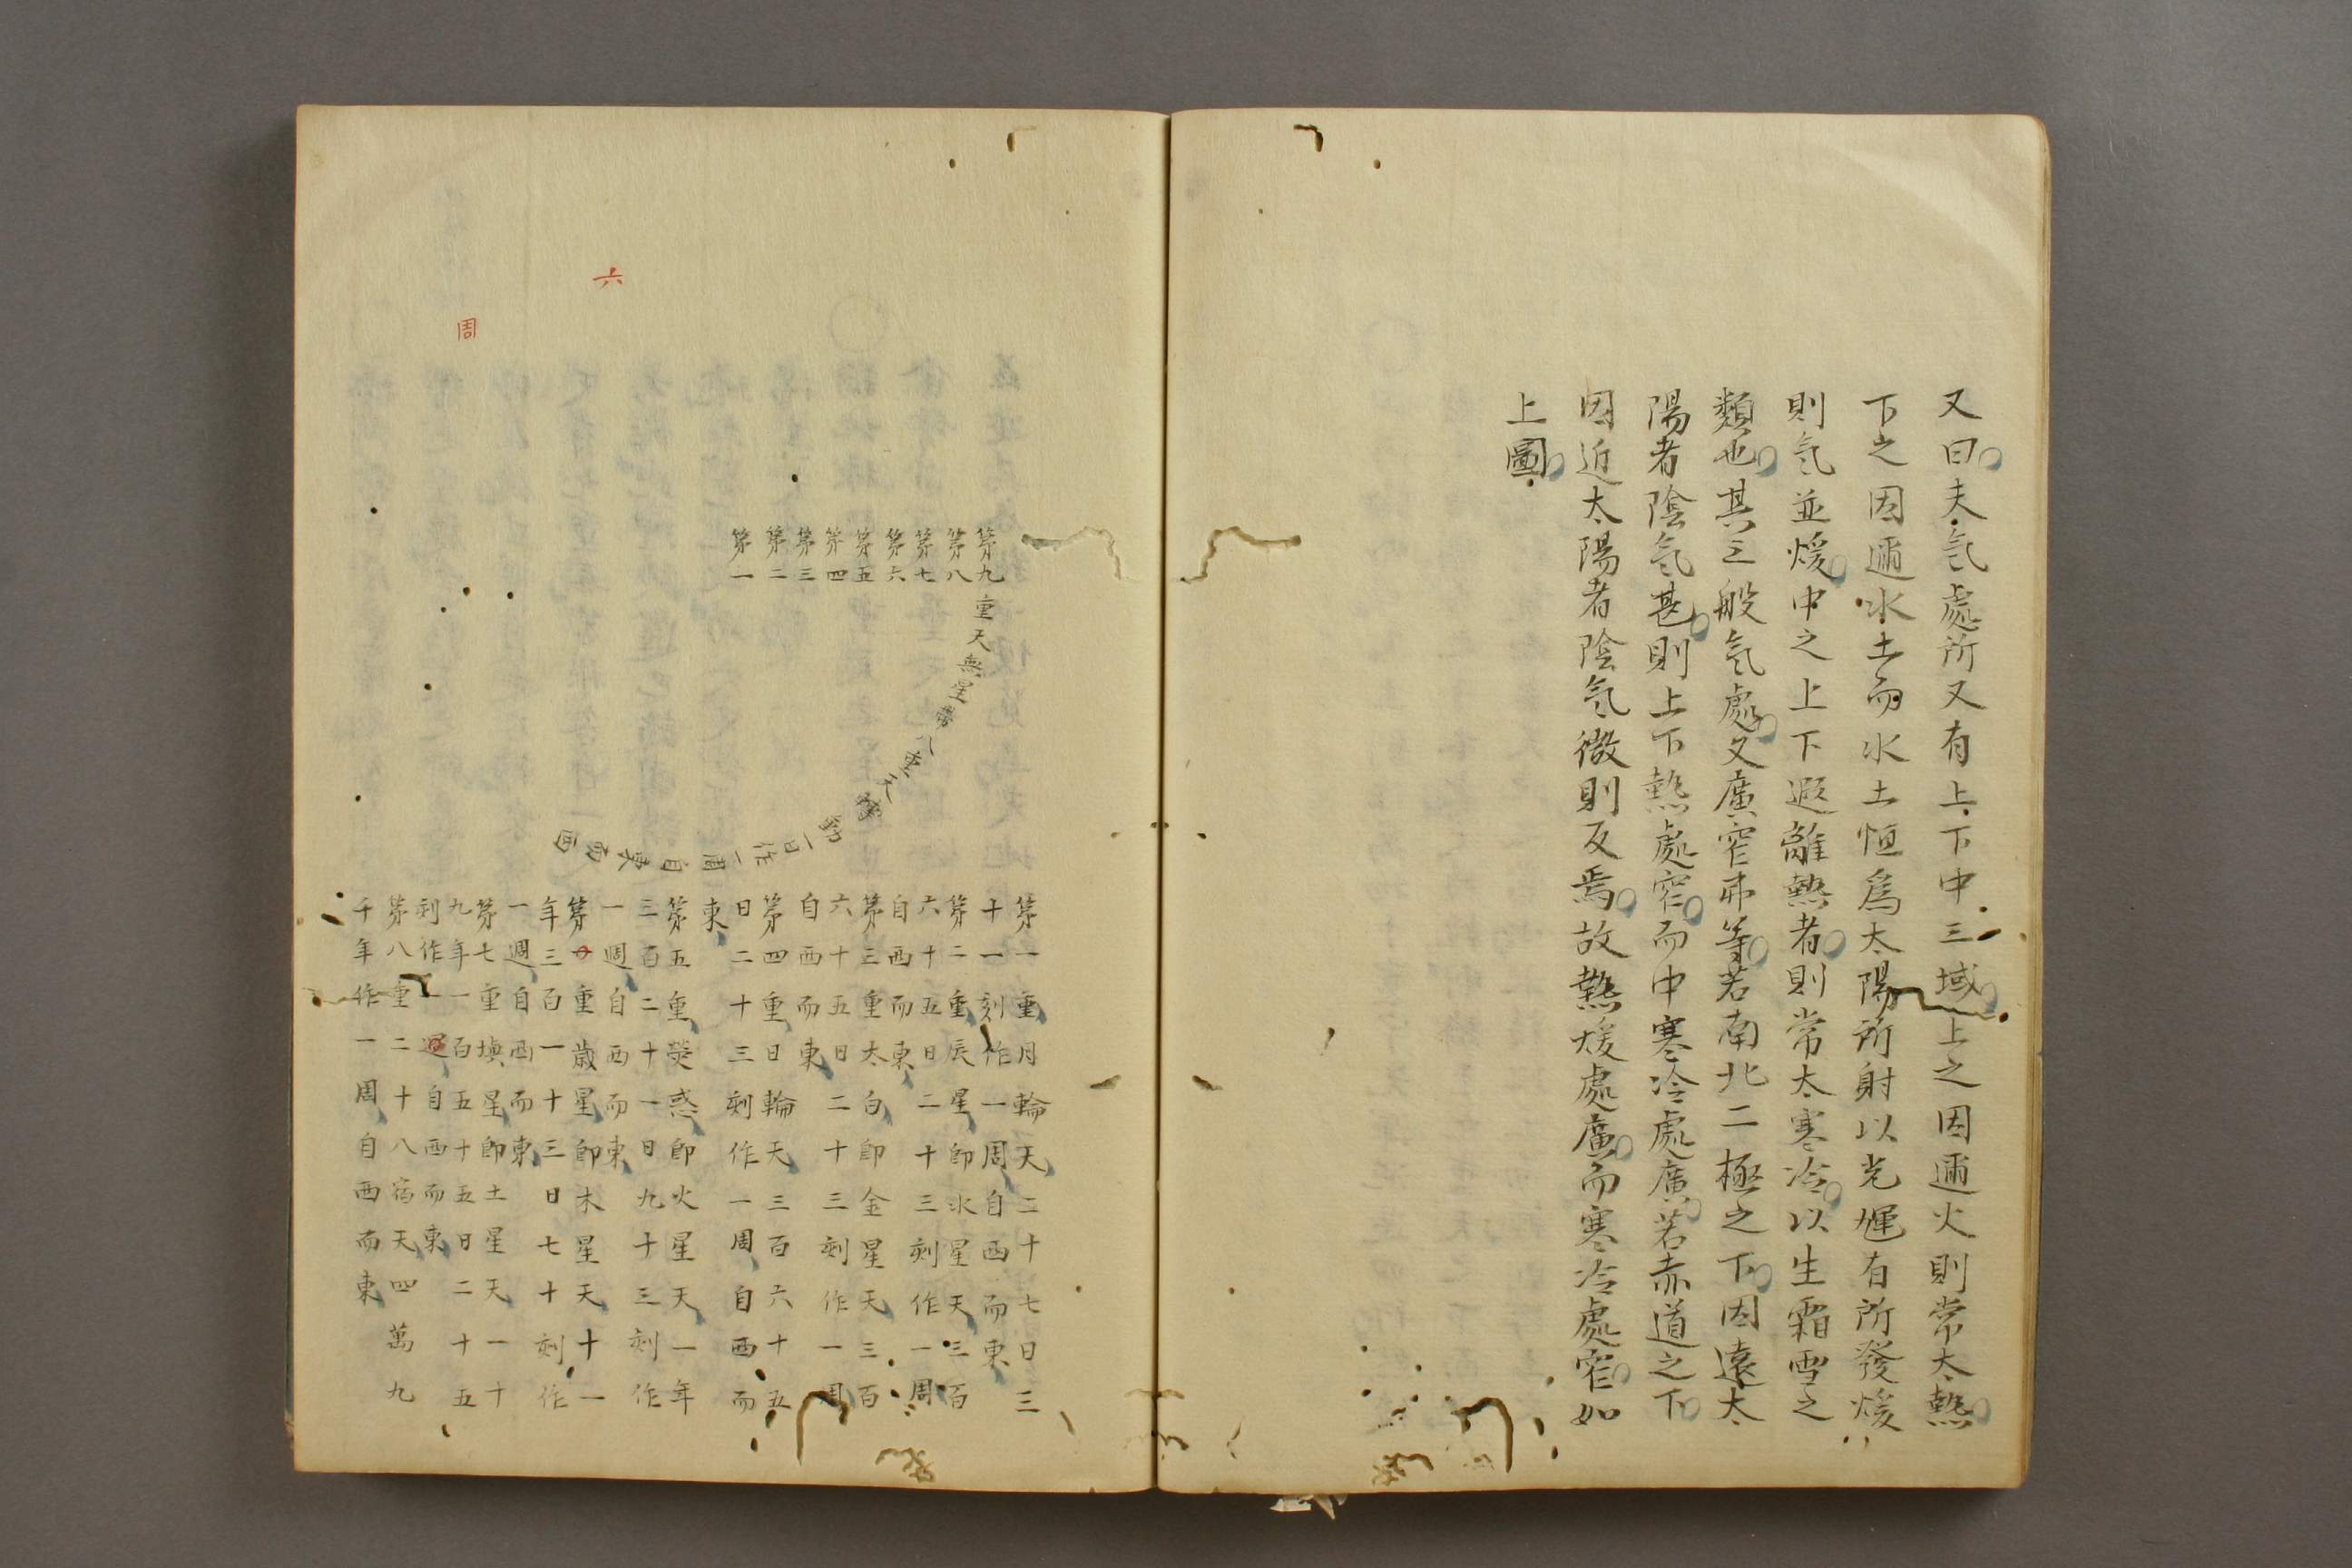 又曰夫氣處所又有上下中三域上之因邇火則常太熱
下之因邇水土而水土恒爲太陽所射以光輝有所發煖
則氣並煖中之上下遐離熱者則常太寒冷以生霜雪之
類也其三般氣處又廣窄弗等若南北二極之下因遠太
陽者陰氣甚則上下熱處窄而中寒冷處廣若赤道之下
因近太陽者陰氣微則反焉故熱煖處廣而寒冷處窄如
上圖
六
周
第九
第八
第七
第六
第五
第四
第三
第二
第一
重天無星帶八重天
一日作一周自東而西
第一重月輪天二十七日三
十一刻作一周自西而東
第二重辰星卽水星天三百
六十五日二十三刻作一周
自西而東
第三重太白卽金星天三百
六十五日二十三刻作一周
自西而東
第四重日輪天三百六十五
日二十三刻作一周自西而
東
第五重熒惑卽火星天一年
三百二十一日九十三刻作
一週自西而東
第 重歲星卽木星天十一
年三百一十三日七十刻作
一週自西而東
第七重塡星卽土星天一十
九年一百五十五日二十五
刻作一週自西而東
第八重二十八宿天四萬九
千年作一周自西而東